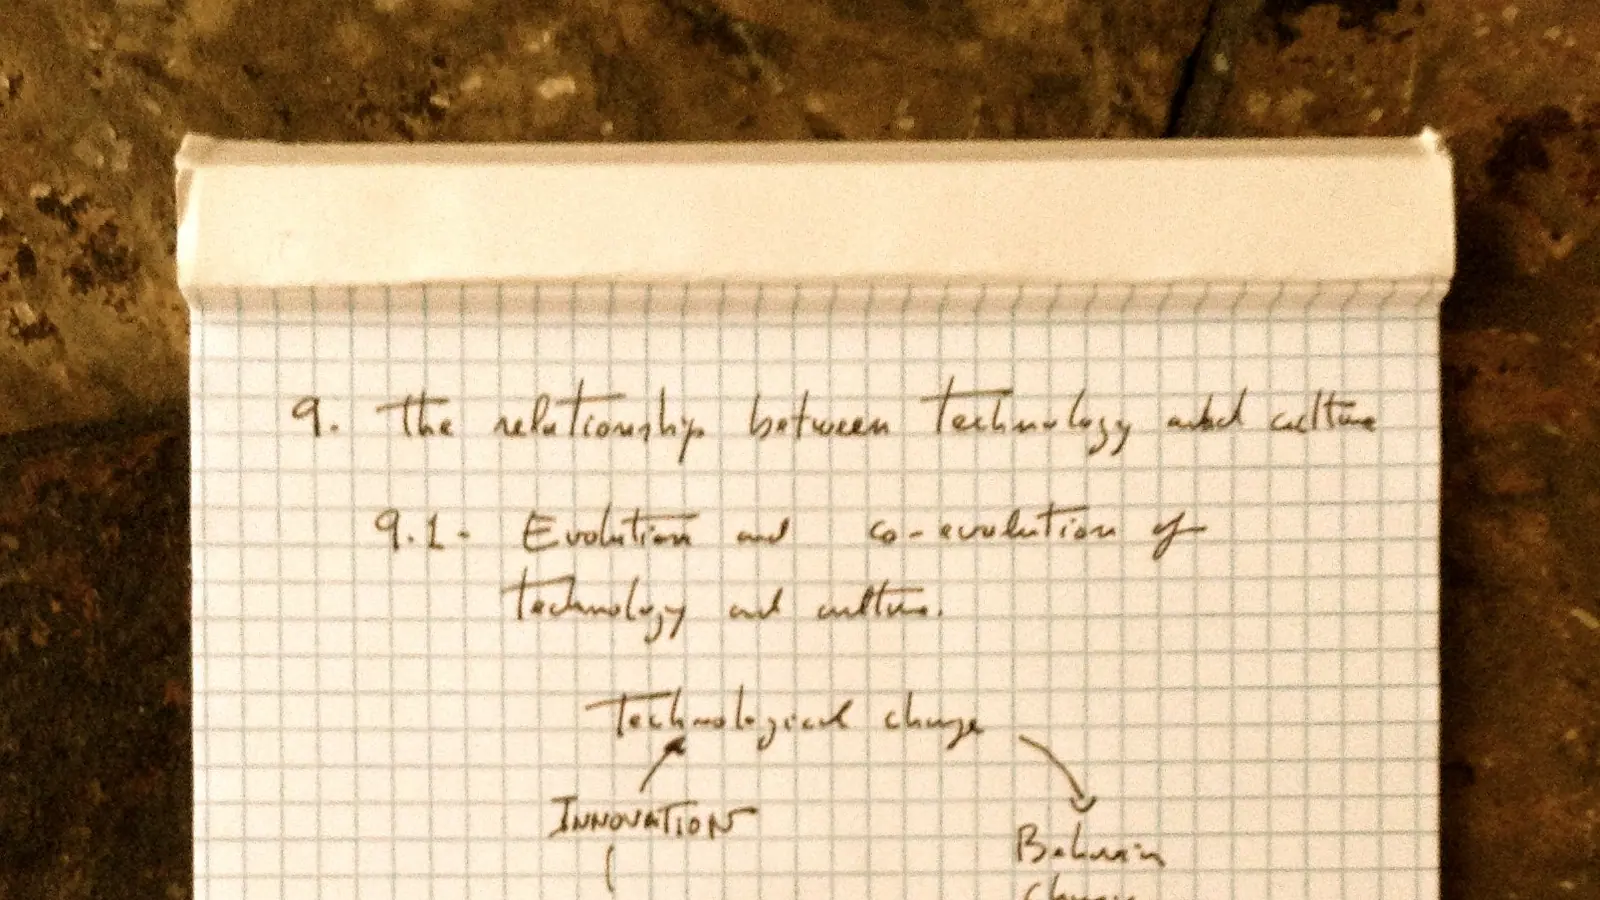 9. The relationship between technology and culture
9.1- Evolution and co-evolution of
technology and culture.
Technological change
INNOVATION
Behavior
change